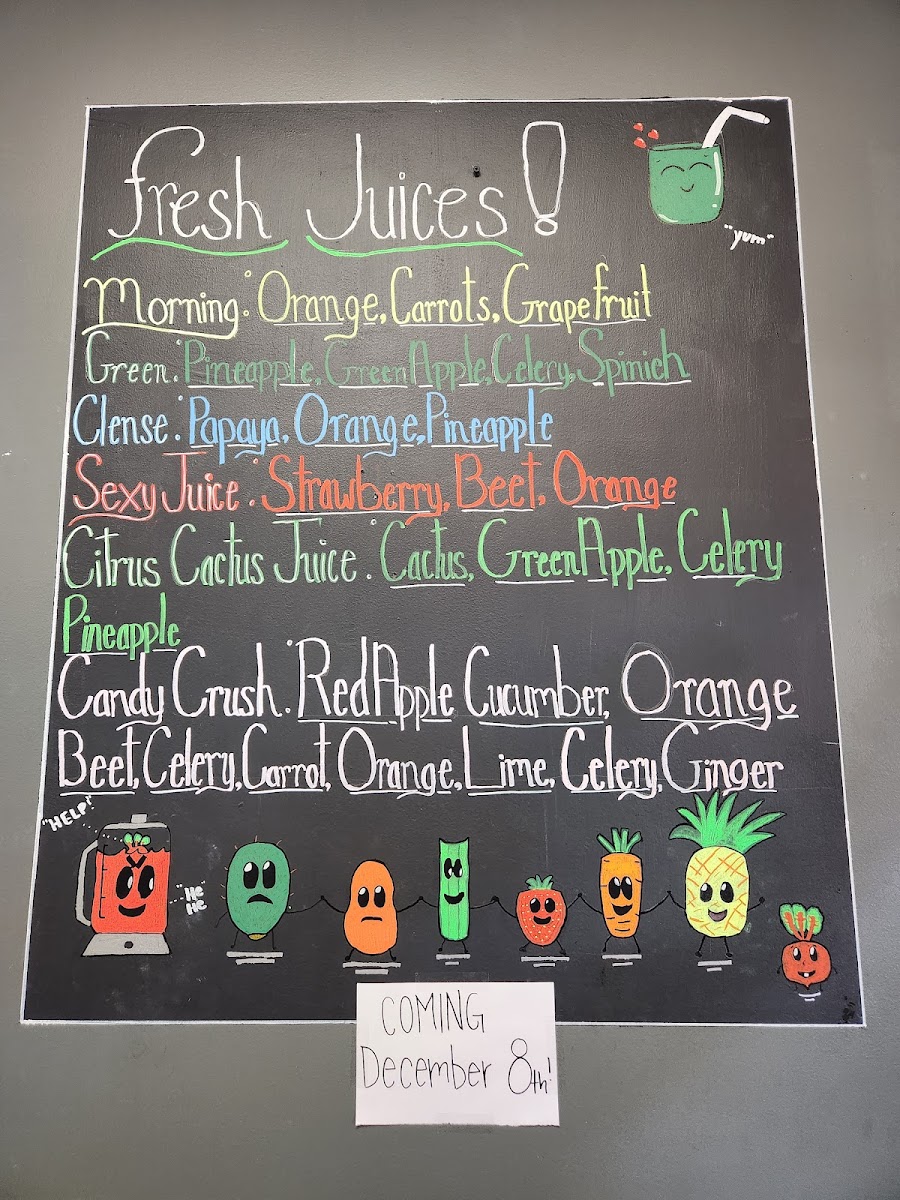 Fresh Juices!
"yum"
Morning: Orange, Carrots, Grapefruit
Green: Pineapple, Green Apple, Celery, Spinich
Clense: Papaya, Orange, Pineapple
Sexy Juice: Strawberry, Beet, Orange
Citrus Cactus Juice: Cactus, Green Apple, Celery
Pineapple
Candy Crush: Red Apple Cucumber, Orange
Beet, Celery, Carrot, Orange, Lime, Celery, Ginger
"HELP!"
"He
He"
COMING
December 8th!